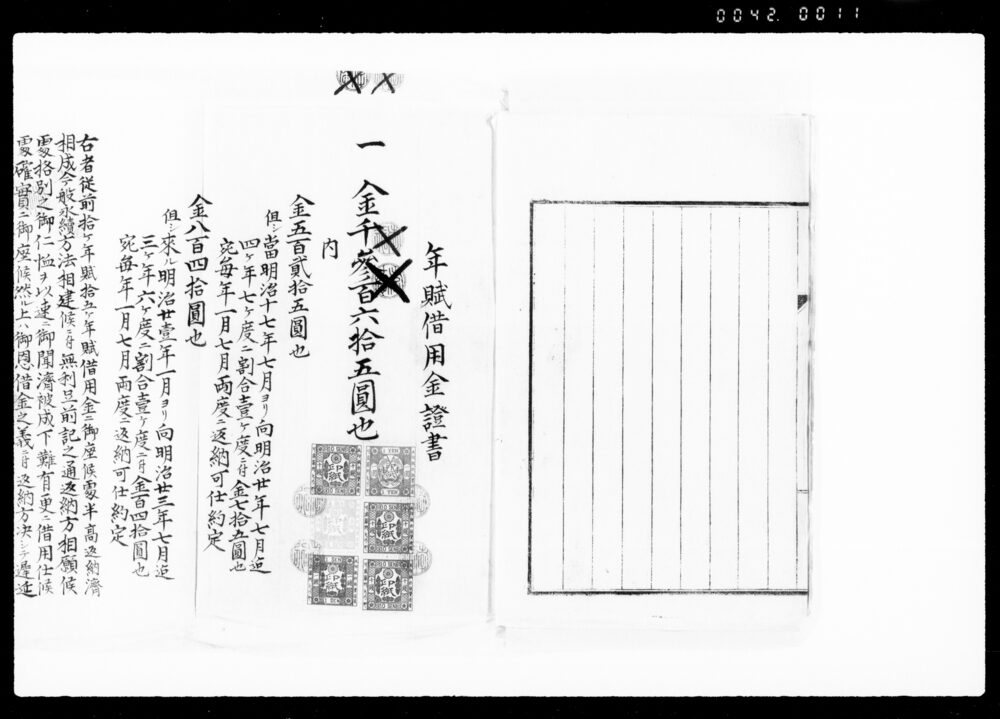 0042.0011
年賦借用金證書
一 金千參百六拾五圓也
内
金五百貳拾五圓也
但シ當明治十七年七月ヨリ向明治廿年七月迄
四ヶ年七ヶ度ニ割合壹ヶ度ニ付金七拾五圓也
宛毎年一月七月両度ニ返納可仕約定
金八百四拾圓也
但シ來ル明治廿壹年一月ヨリ向明治廿三年七月迄
三ヶ年六ヶ度ニ割合壹ヶ度ニ付金百四拾圓也
宛毎年一月七月両度ニ返納可仕約定
右者従前拾ヶ年賦拾五ヶ年賦借用金ニ御座候處半高返納濟
相成今般永續方法相建候ニ付無利且前記之通返納方相願候
處格別之御仁恤ヲ以速ニ御聞濟被成下難有更ニ借用仕候
處確實ニ御座候然ル上ハ御恩借金之義ニ付返納方決シテ遲延
印紙
1 YEN
印紙
印紙
印紙